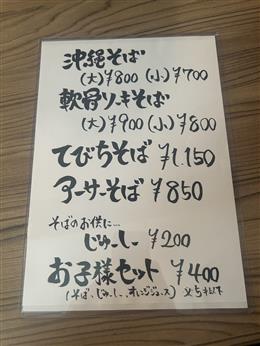 沖縄そば
(大)¥800 (小)¥700
軟骨ソーキそば
(大)¥900 (小)¥800
てびちそば ¥1.150
アーサーそば ¥850
そばのお供に…
じゅーしー ¥200
お子様セット ¥400
(そば、じゅーしー、オレンジジュース)
才以下